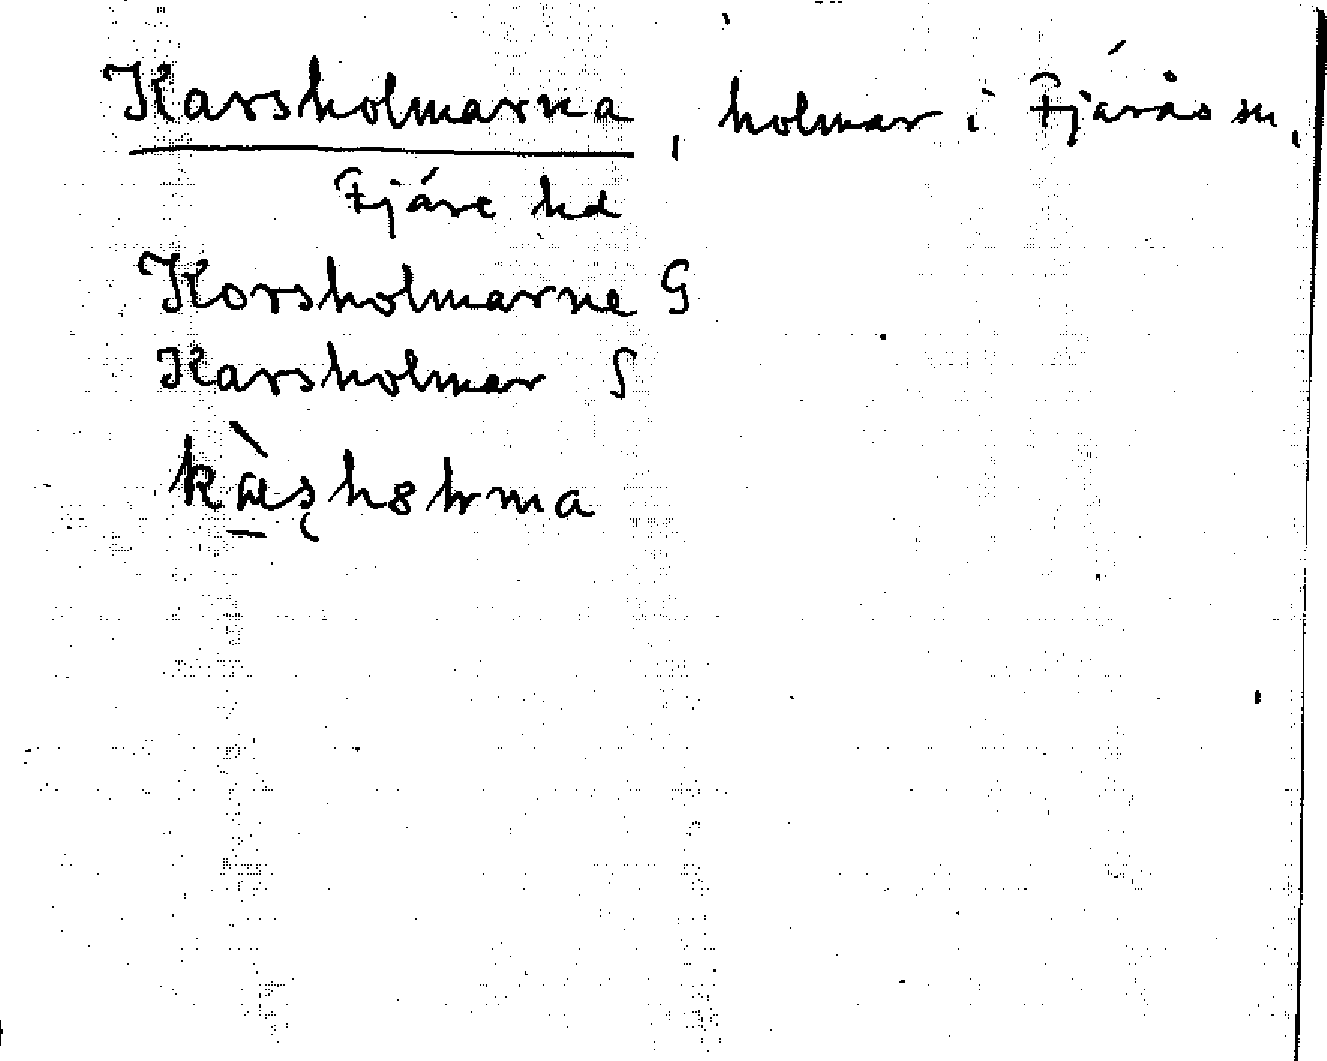 Karsholmarna, holmar i Fjärås sn,
Fjäre hd
Korsholmarne G
Karsholmar S